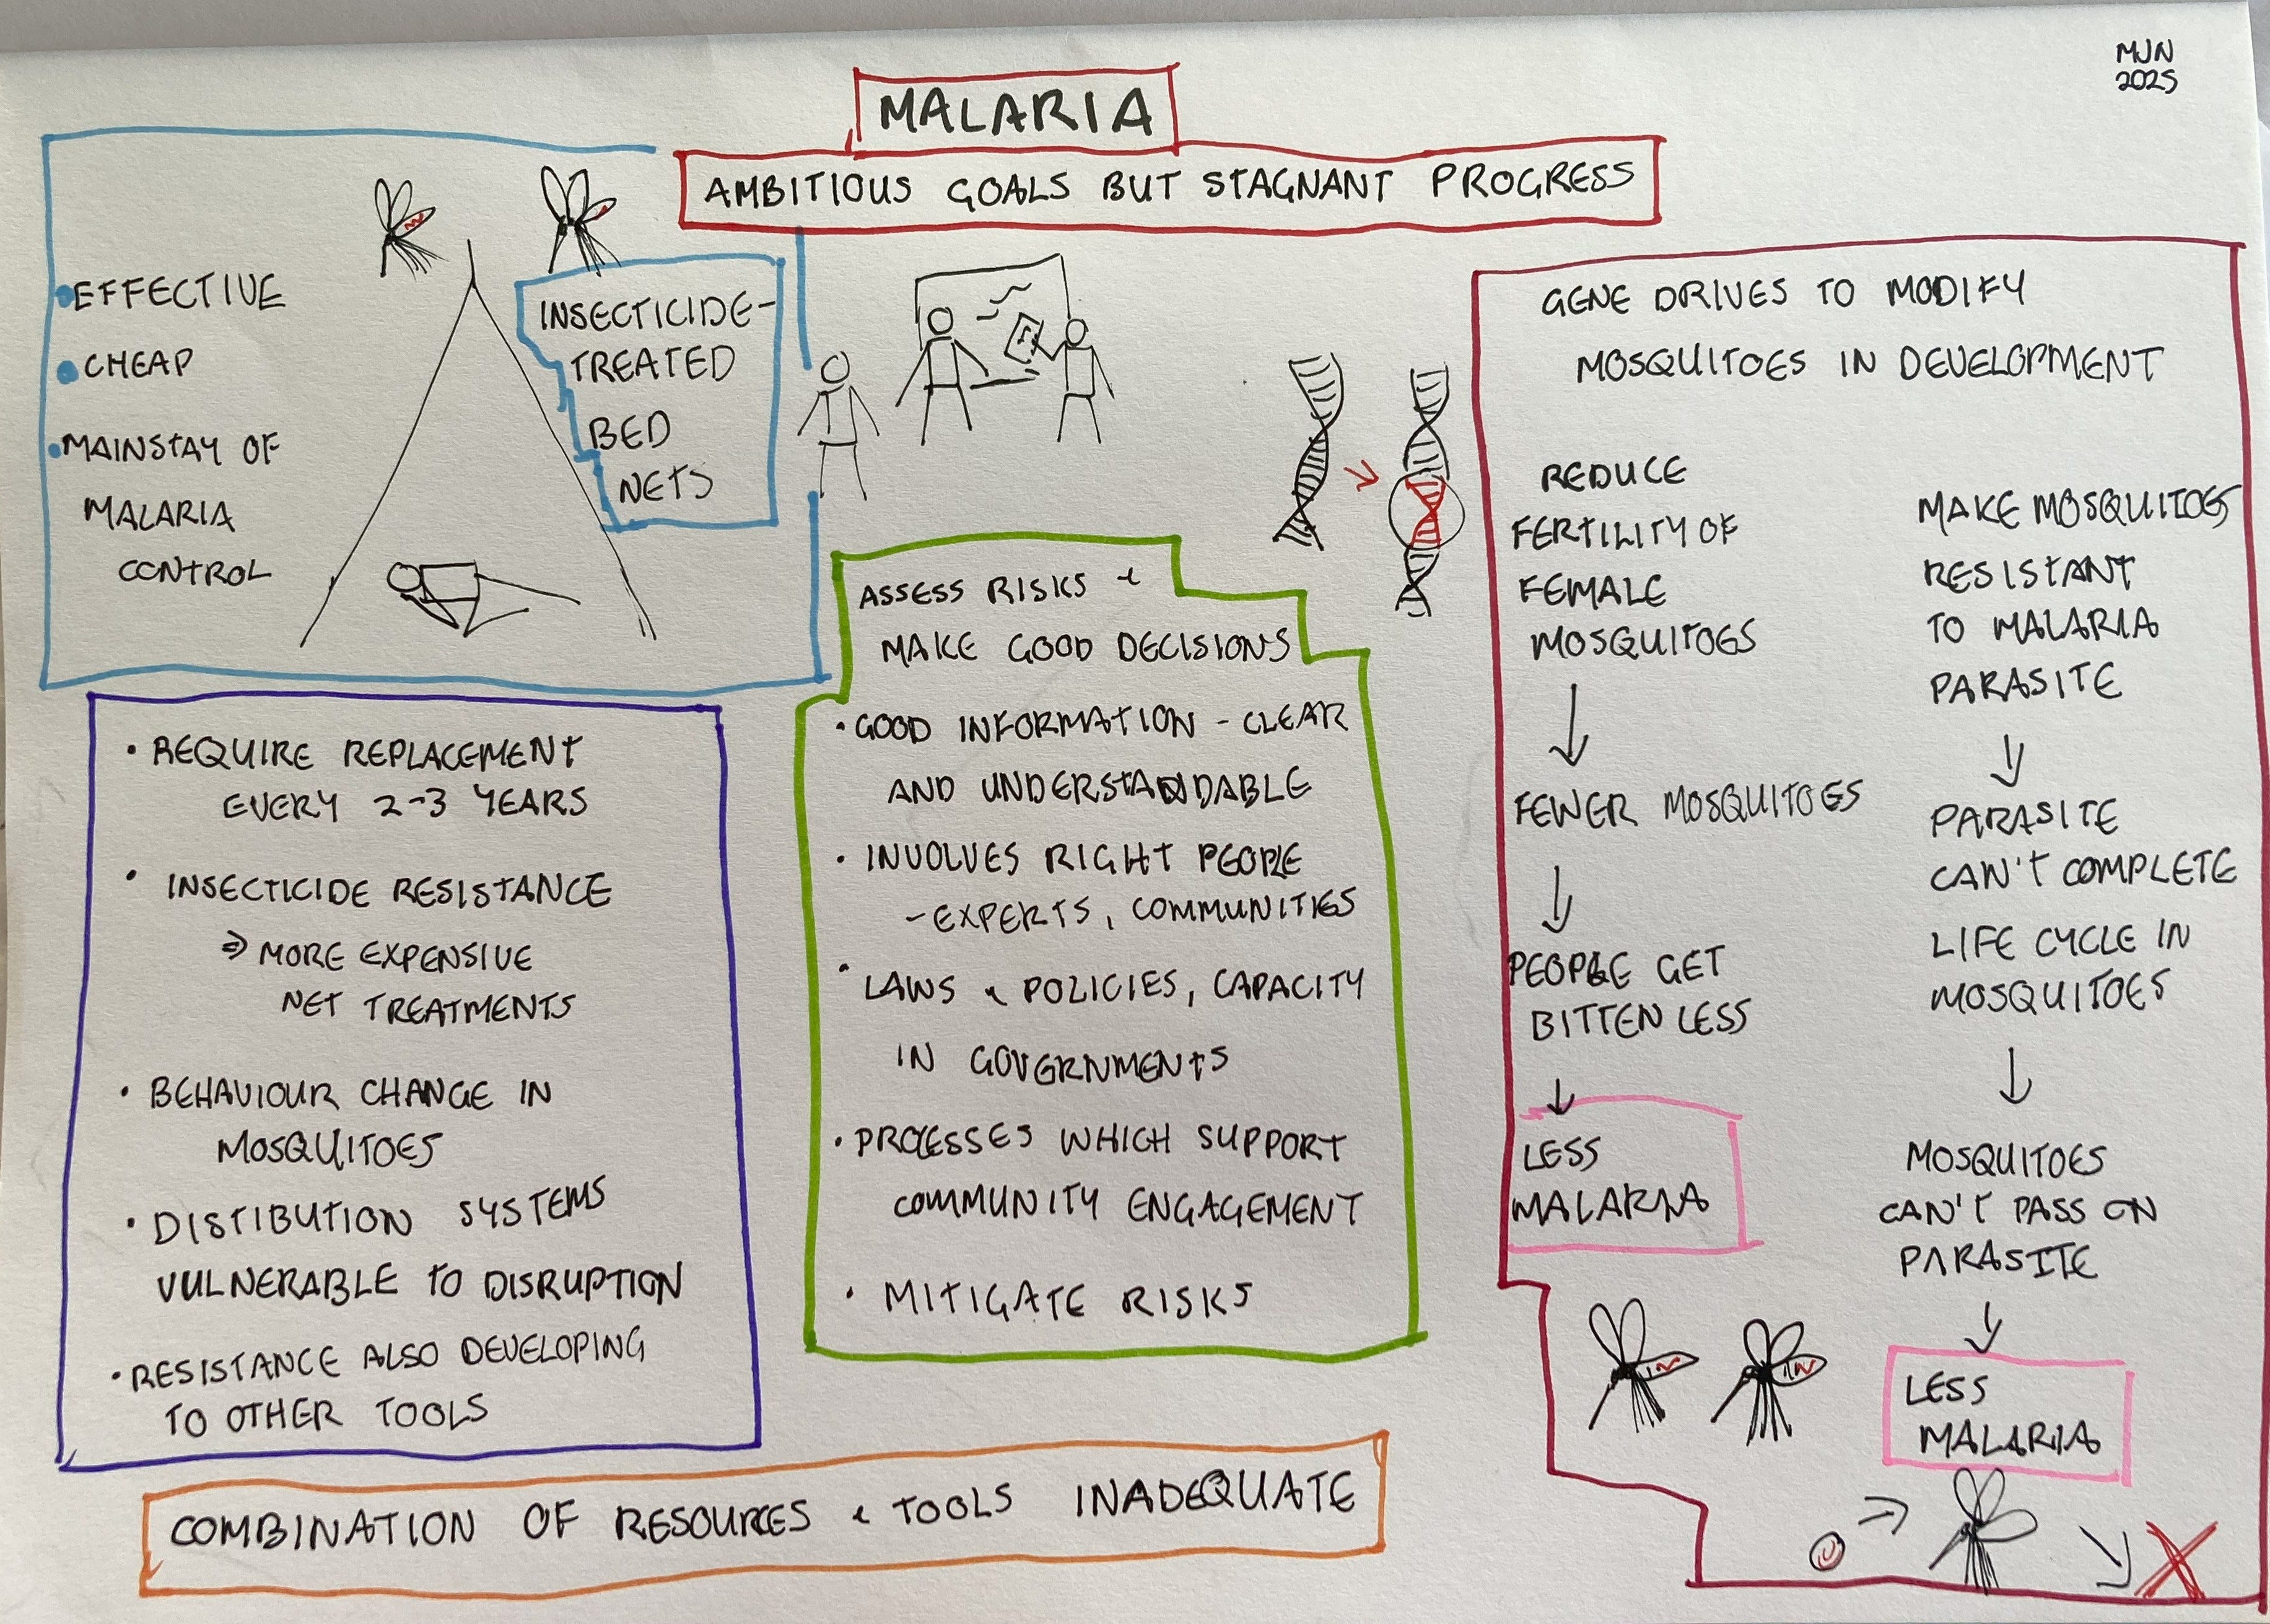 MJN
2025
MALARIA
AMBITIOUS GOALS BUT STAGNANT PROGRESS
• EFFECTIVE
• CHEAP
• MAINSTAY OF
MALARIA
CONTROL
INSECTICIDE-
TREATED
BED
NETS
• REQUIRE REPLACEMENT
EVERY 2-3 YEARS
• INSECTICIDE RESISTANCE
⇒ MORE EXPENSIVE
NET TREATMENTS
• BEHAVIOUR CHANGE IN
MOSQUITOES
• DISTIBUTION SYSTEMS
VULNERABLE TO DISRUPTION
• RESISTANCE ALSO DEVELOPING
TO OTHER TOOLS
COMBINATION OF RESOURCES & TOOLS INADEQUATE
ASSESS RISKS &
MAKE GOOD DECISIONS
• GOOD INFORMATION - CLEAR
AND UNDERSTANDABLE
• INVOLVES RIGHT PEOPLE
- EXPERTS, COMMUNITIES
• LAWS & POLICIES, CAPACITY
IN GOVERNMENTS
• PROCESSES WHICH SUPPORT
COMMUNITY ENGAGEMENT
• MITIGATE RISKS
GENE DRIVES TO MODIFY
MOSQUITOES IN DEVELOPMENT
REDUCE
FERTILITY OF
FEMALE
MOSQUITOES
↓
FEWER MOSQUITOES
↓
PEOPLE GET
BITTEN LESS
↓
LESS
MALARIA
MAKE MOSQUITOES
RESISTANT
TO MALARIA
PARASITE
↓
PARASITE
CAN'T COMPLETE
LIFE CYCLE IN
MOSQUITOES
↓
MOSQUITOES
CAN'T PASS ON
PARASITE
↓
LESS
MALARIA